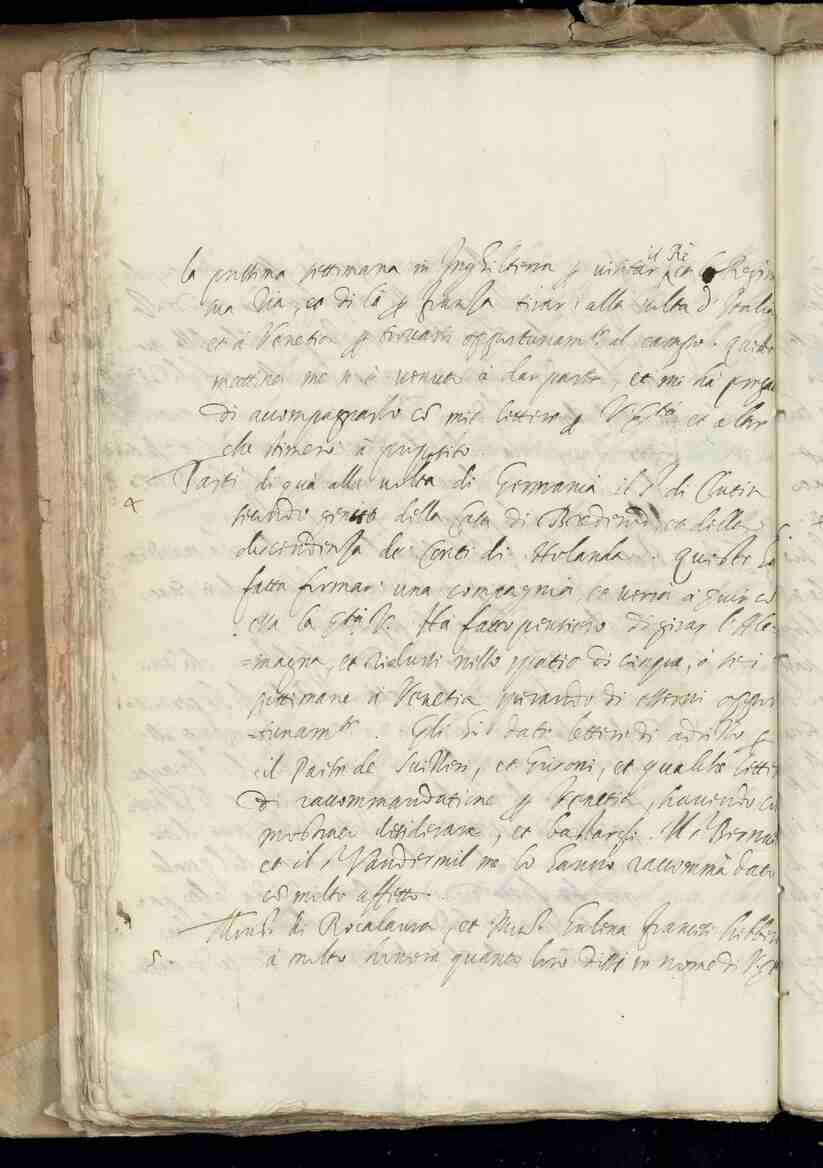 la prossima settimana in Inghilterra p visitar il Rè et la Regina
sua Zia, et di là p Franza tirar alla volta d'Italia
et à Venetia p trovarsi opportunam.te al campo. Questa
mattina me n'è venuto à dar parte, et mi hà pregato
di accompagnarlo cõ mie lettere p V. Ser.tà et altri
che stimerò à proposito.
4 Partì di quà alla volta di Germania il S.r di
secondo genito della Casa di Brederod, et della
discendenza dei Conti di Holanda. Questo hà
fatta firmar una compagnia, et verrà à servir cõ
essa la Ser.tà V. Hà fatto pensiero di girar l'Ale=
=magna, et ridursi nello spatio di cinque, ò sei
settimane à Venetia sperando di esservi oppor
=tunam.te. Gli hò dato lettere di adrizzo p
il Padavin, et qualche lettera
di raccommandatione p Venetia, havendo cõ
mostrar desiderare, et bastargli. Il S.r
et il S.r Vandermil me lo hanno raccommãdato
cõ molto affetto.
5. Mons.r di Rocalaura, et Mons.r francesi hebbero
à molto honore quanto loro dissi in nome di V. Ser.tà